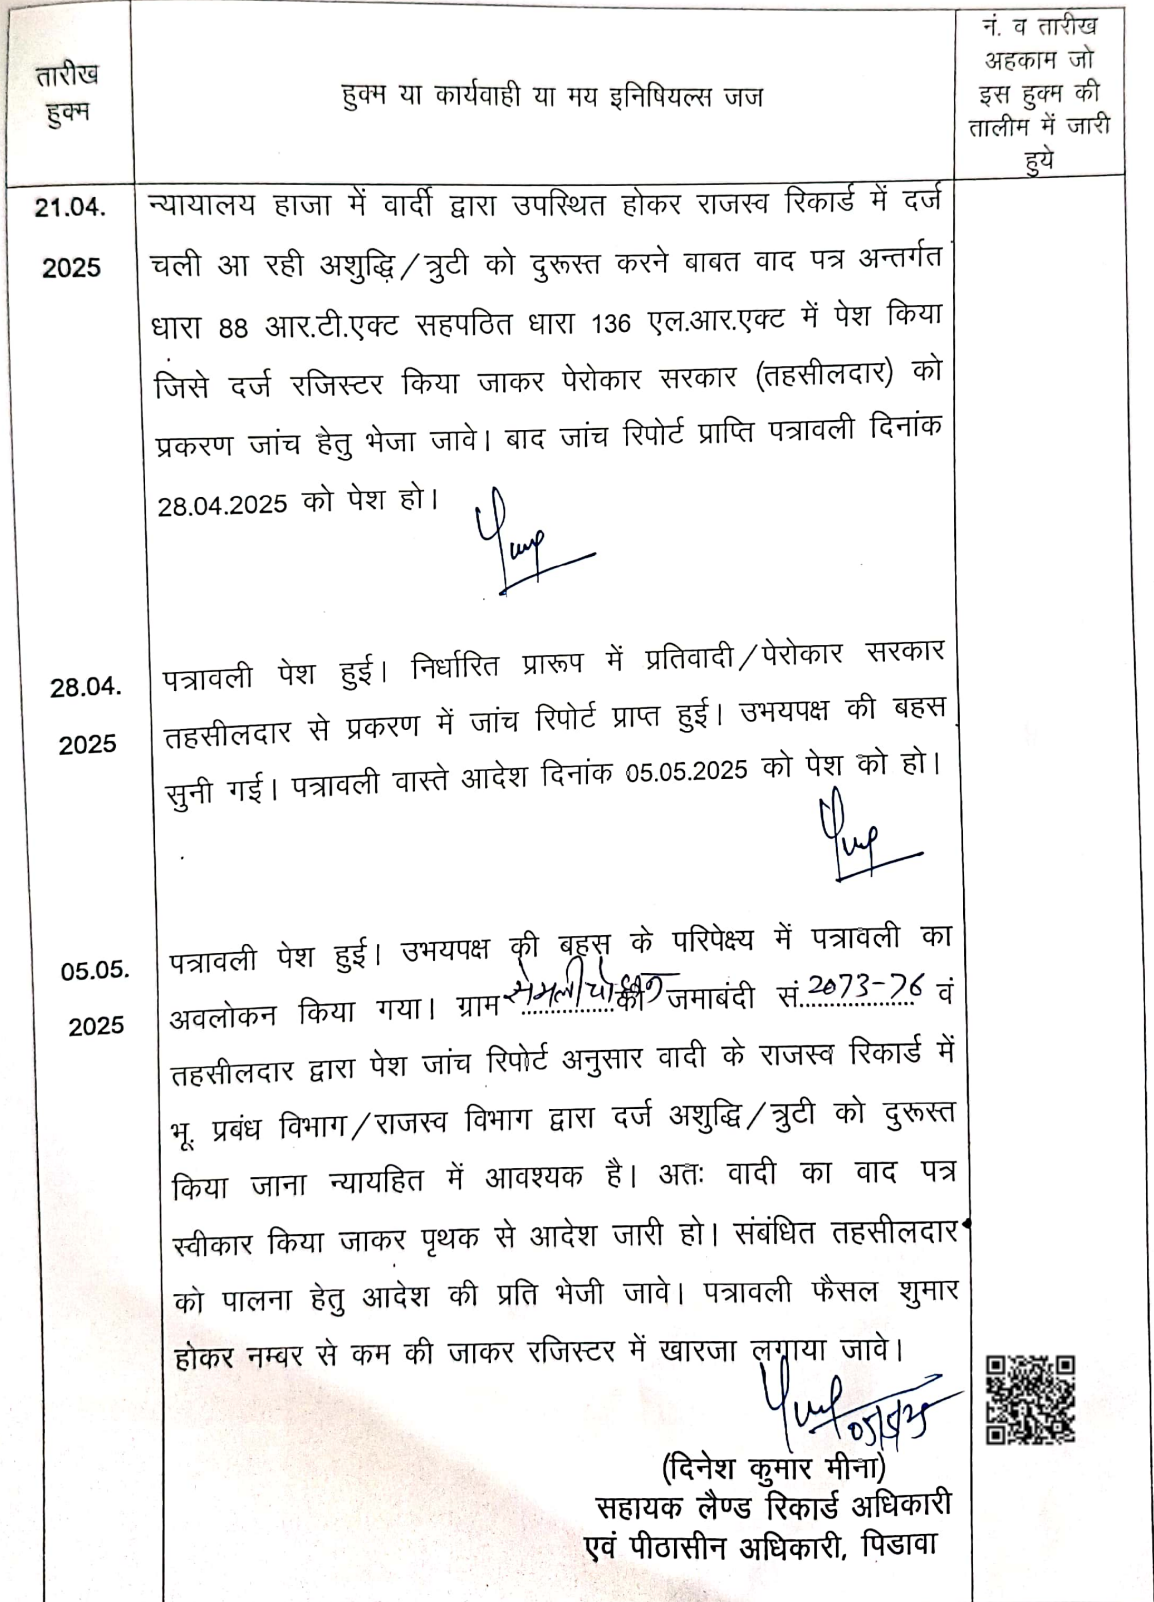 तारीख
हुक्म
हुक्म या कार्यवाही या मय इनिषियल्स जज
नं. व तारीख
अहकाम जो
इस हुक्म की
तालीम में जारी
हुये
21.04.
2025
न्यायालय हाजा में वार्दी द्वारा उपस्थित होकर राजस्व रिकार्ड में दर्ज
चली आ रही अशुद्धि/त्रुटी को दुरूस्त करने बाबत वाद पत्र अन्तर्गत
धारा 88 आर.टी.एक्ट सहपठित धारा 136 एल.आर.एक्ट में पेश किया
जिसे दर्ज रजिस्टर किया जाकर पेरोकार सरकार (तहसीलदार) को
प्रकरण जांच हेतु भेजा जावे। बाद जांच रिपोर्ट प्राप्ति पत्रावली दिनांक
28.04.2025 को पेश हो।
28.04.
2025
पत्रावली पेश हुई। निर्धारित प्रारूप में प्रतिवादी/पेरोकार सरकार
तहसीलदार से प्रकरण में जांच रिपोर्ट प्राप्त हुई। उभयपक्ष की बहस
सुनी गई। पत्रावली वास्ते आदेश दिनांक 05.05.2025 को पेश को हो।
05.05.
2025
पत्रावली पेश हुई। उभयपक्ष की बहस के परिपेक्ष्य में पत्रावली का
अवलोकन किया गया। ग्राम ............... की जमाबंदी सं. 2073-76 वं
तहसीलदार द्वारा पेश जांच रिपोर्ट अनुसार वादी के राजस्व रिकार्ड में
भू. प्रबंध विभाग/राजस्व विभाग द्वारा दर्ज अशुद्धि/त्रुटी को दुरूस्त
किया जाना न्यायहित में आवश्यक है। अतः वादी का वाद पत्र
स्वीकार किया जाकर पृथक से आदेश जारी हो। संबंधित तहसीलदार
को पालना हेतु आदेश की प्रति भेजी जावे। पत्रावली फैसल शुमार
होकर नम्बर से कम की जाकर रजिस्टर में खारजा लगाया जावे।
05/5/25
(दिनेश कुमार मीना)
सहायक लैण्ड रिकार्ड अधिकारी
एवं पीठासीन अधिकारी, पिडावा